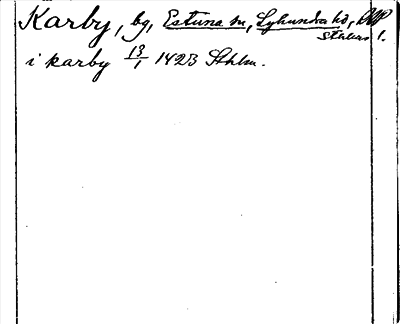 Karby, by, Estuna sn, Lyhundra hd, AUP
Sthlms l.
i karby 13/1 1423 Sthlm.